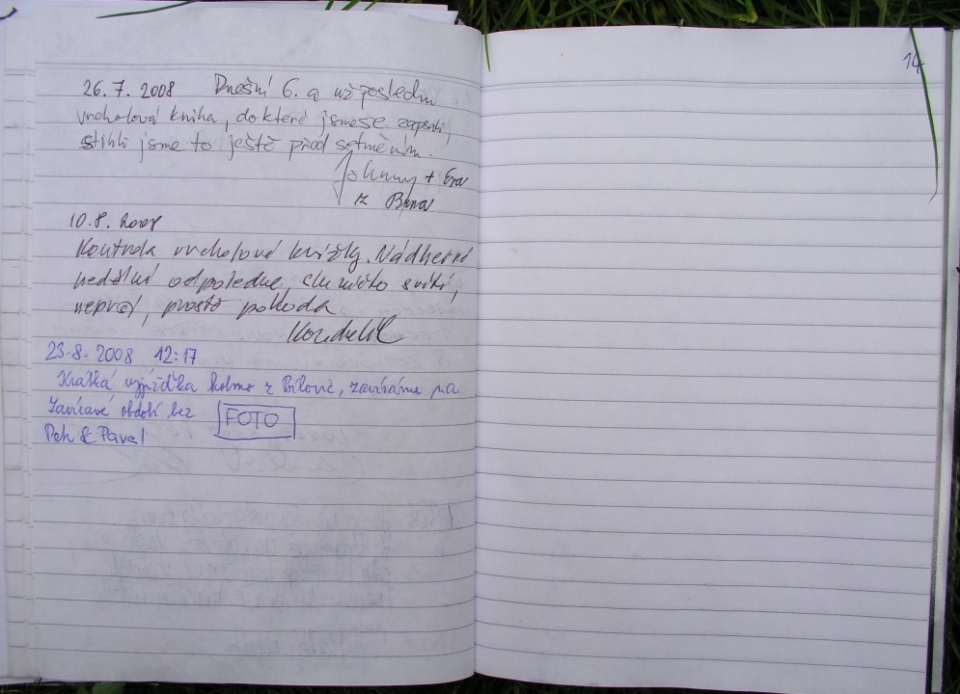 26.7.2008 Dnešní 6. a už poslední
vrcholová kniha, do které jsme se zapsali,
stihli jsme to ještě před setměním.
Johnny + Eva
z Brna
10.8.2008
Kontrola vrcholové knížky. Nádherné
nedělní odpoledne, sluníčko svítí,
neprší, prostě pohoda
23.8.2008 12:17
Krátká vyjížďka kolmo z Bílovic, zavíráme na
bez FOTO
Peh & Pavel
14